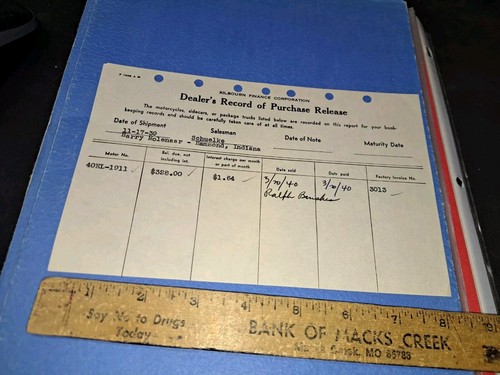 KILBOURN FINANCE CORPORATION
Dealer's Record of Purchase Release
The motorcycles, sidecars, or package trucks listed below are recorded on this report for your book-
keeping records and should be carefully taken care of at all times.
Date of Shipment Salesman Date of Note Maturity Date
11-17-39 Schuelke
Harry Molenaar - Hammond, Indiana
Motor No. Bal. due not including int. Interest charge per month or part of month Date sold Date paid Factory Invoice No.
40EL-1911 $328.00 ✓ $1.64 ✓ 3/70/40 3/70/40 3013 ✓
Ralph
1 2 3 4 5 6 7 8 9
Say No to Drugs
Today
BANK OF MACKS CREEK
Macks Creek, MO 65783